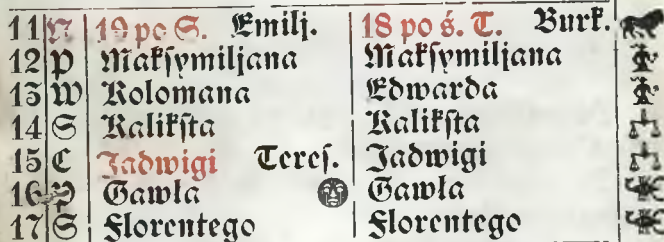 11 N 19 po S. Emilj. 18 po ś. T. Burk.
12 P Makſymiljana Makſymiljana
13 W Kolomana Edwarda
14 S Kalikſta Kalikſta
15 C Jadwigi Tereſ. Jadwigi
16 P Gawła Gawła
17 S Florentego Florentego